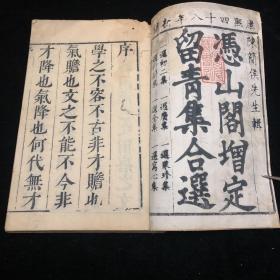 康熙四十八年新
陳簡侯先生輯
憑山閣增定
留青集合選
選初二集
選廣集
選全集
選采珍集
選寫心集
序
學之不容不古非才贍也
氣贍也文之不能不今非
才降也氣降也何代無才